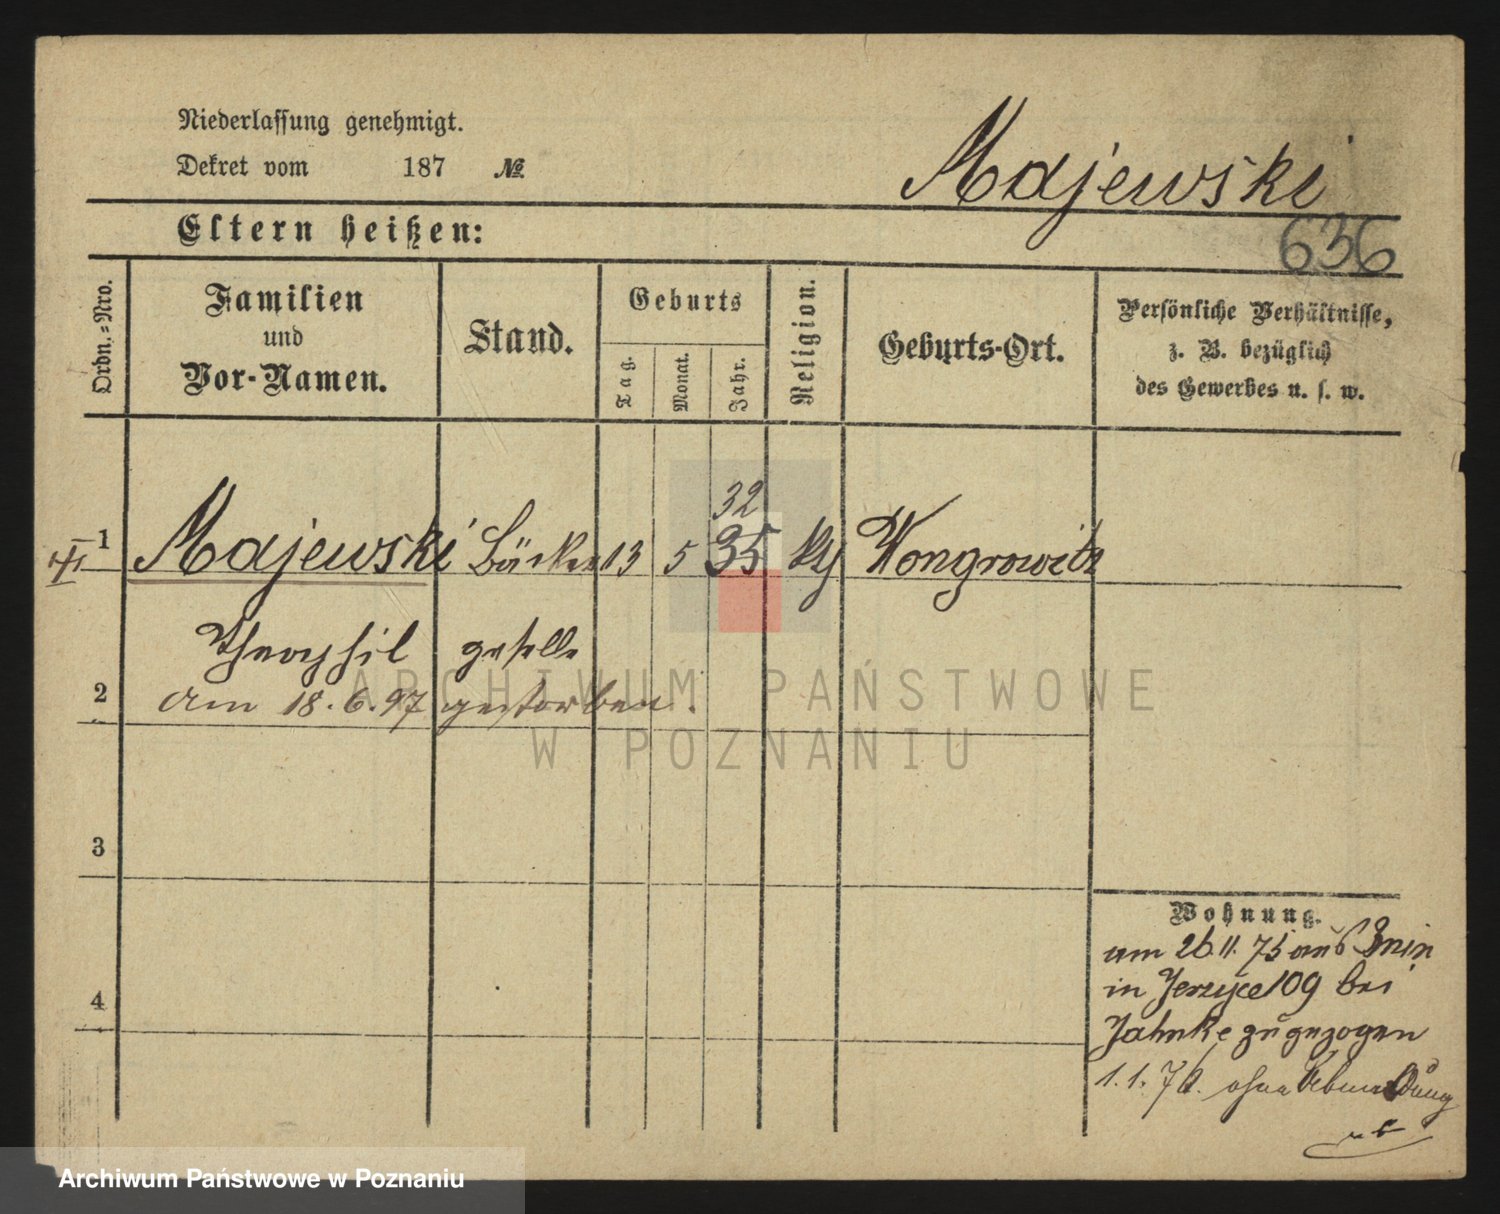 Niederlassung genehmigt.
Dekret vom 187 №
Majewski
Eltern heißen:
636
Ordn.-Nro.
Familien
und
Vor-Namen.
Stand.
Geburts
Tag.
Monat.
Jahr.
Religion.
Geburts-Ort.
Persönliche Verhältnisse,
z. B. bezüglich
des Gewerbes u. s. w.
32
1 Majewski Bäcker 13 5 35 kth Wongrowitz
Theophil geselle
2 am 18.6.97 gestorben.
ARCHIWUM PAŃSTWOWE
W POZNANIU
3
Wohnung.
am 26.11.75 aus Znin
in Jerzyce 109 bei
4
Jahnke zugezogen
1.1.76. ohne Abmeldung
Archiwum Państwowe w Poznaniu